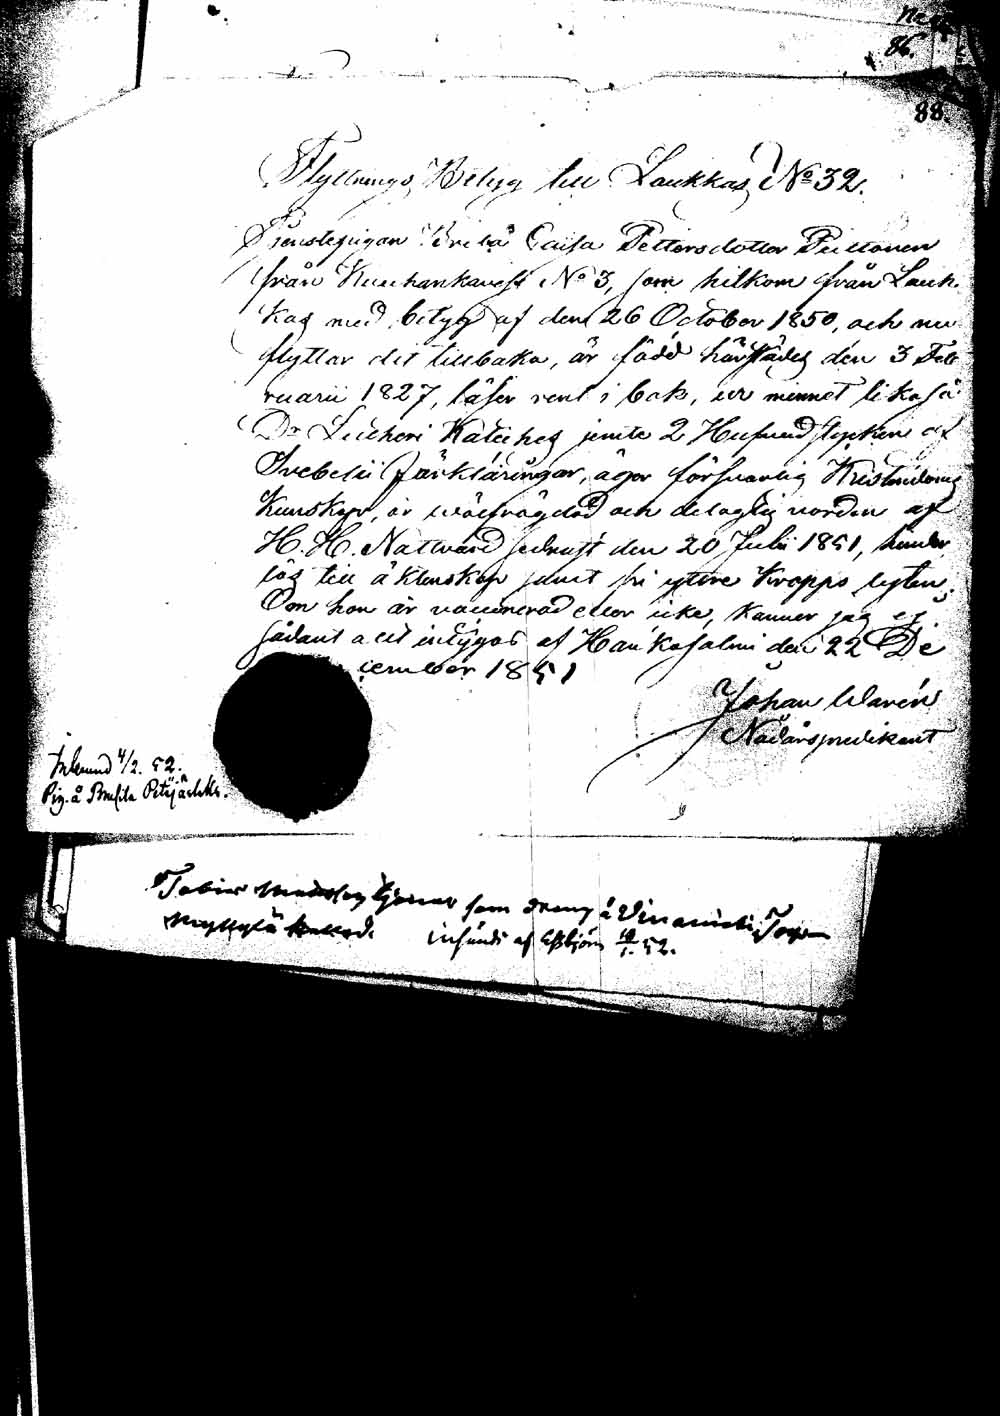 86.
88.
Flyttnings Betyg till Laukkas No 32.
Tjenstepigan Brita Caisa Pettersdotter Puttonen
från Kuuhankavesi No 3, som hitkom från Lauk-
kas med betyg af den 26 October 1850, och nu
flyttar dit tillbaka, är född härstädes den 3 Feb
ruarii 1827, läser rent i bok, ur minnet likaså
Dr Lutheri Kateches jemte 2 Hufvudstycken af
Svebelii Förklaringar, äger försvarlig Kristendoms
Kunskap, är wälfrägdad och delagtig vorden af
H. H. Nattvard sednast den 20 Julii 1851, hinder
lös till äktenskap samt fri yttre Kropps lyten.
Om hon är vaccinerad eller icke, känner jag ej
sådant allt intygas af Hankasalmi den 22 De
cember 1851
Johan Warén
Nådårspredikant
4/2. 52.
Pig. å
Tobias som dreng å
insändt af 52.